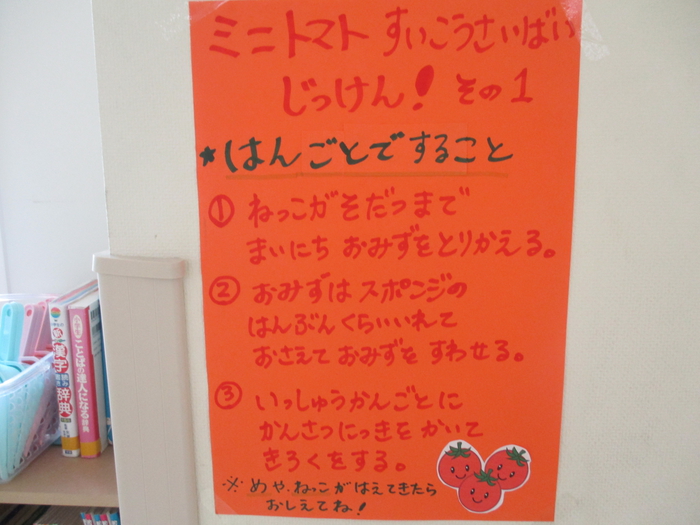 ミニトマト すいこうさいばい
じっけん! その1
★はんごとですること
① ねっこがそだつまで
まいにち おみずをとりかえる。
② おみずは スポンジの
はんぶんくらいいれて
おさえて おみずを すわせる。
③ いっしゅうかんごとに
かんさつにっきを かいて
きろくをする。
※ めや、ねっこがはえてきたら
おしえてね!
漢字
読み書き
辞典
ことばの達人になる辞典